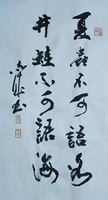 夏蟲不可語冰
井蛙不可語海